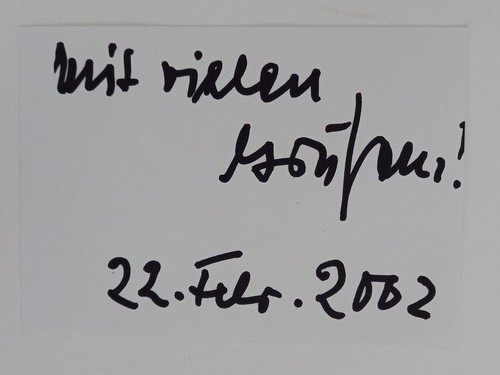 Mit vielen
Grüßen!
22. Febr. 2002